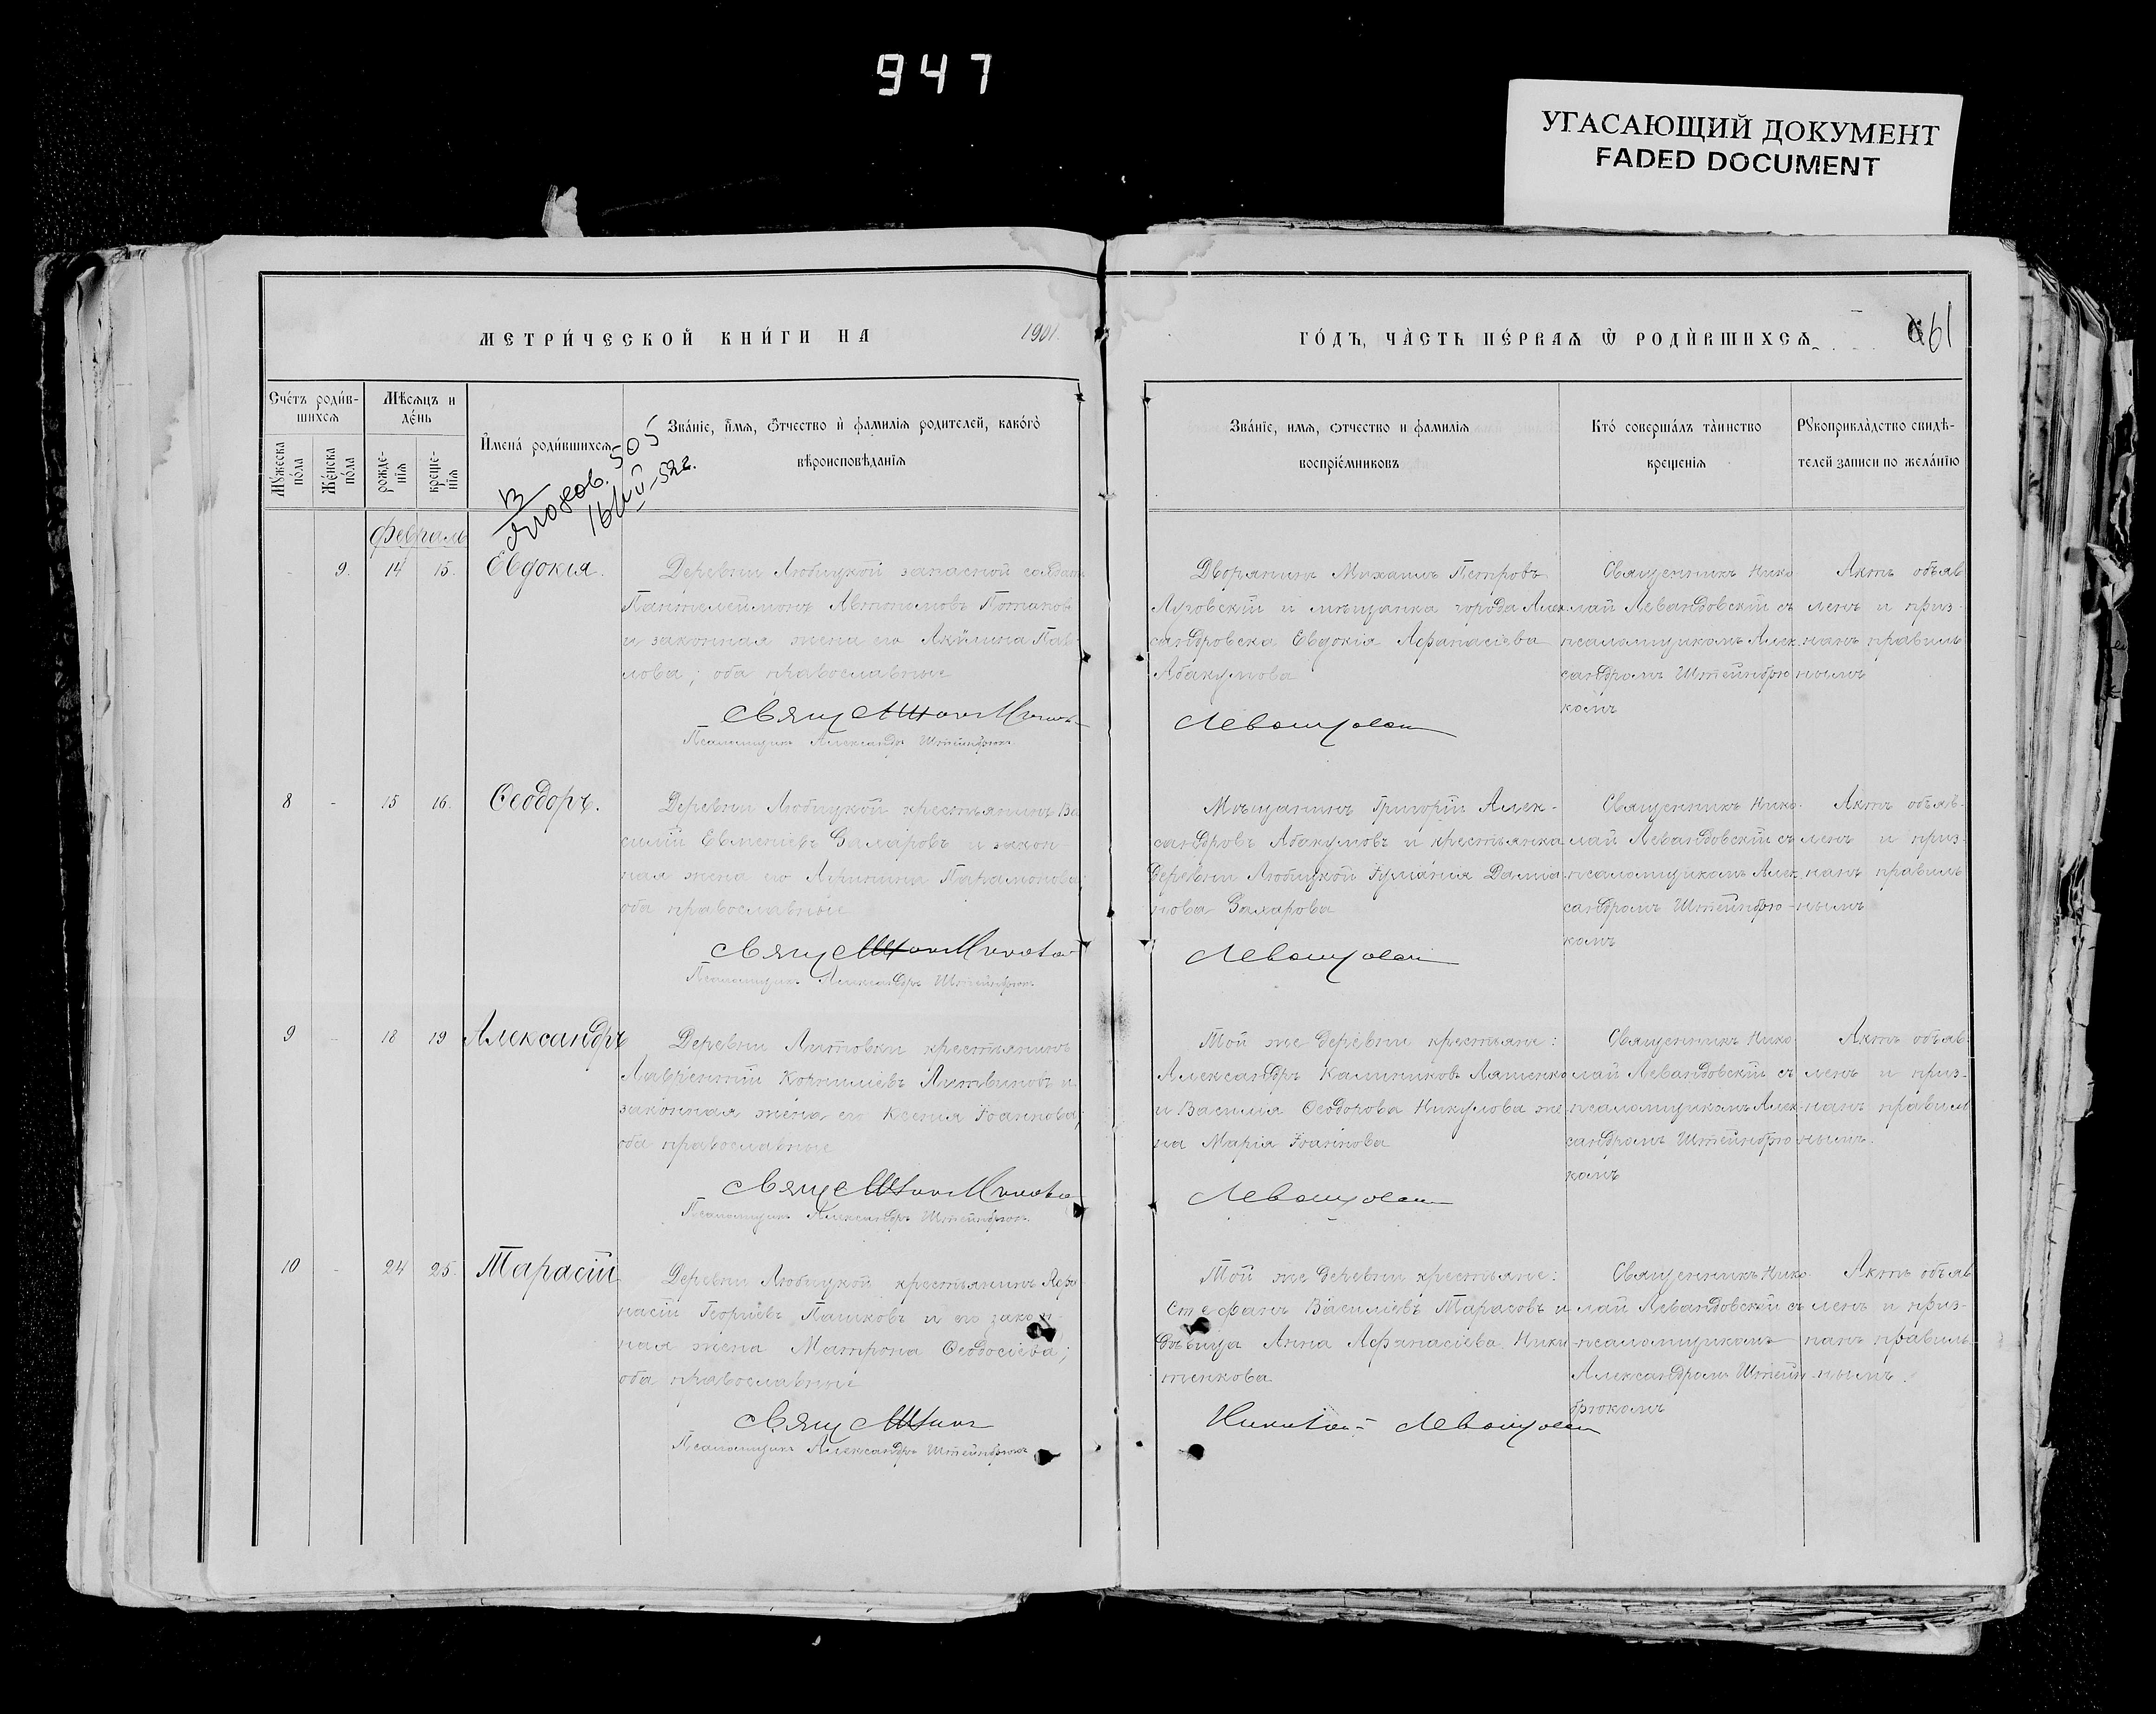 947
УГАСАЮЩИЙ ДОКУМЕНТ
FADED DOCUMENT
МЕТРИ́ЧЕСКОЙ КНИ́ГИ НА 1901.
ГО́ДЪ, ЧА̀СТЬ ПЕ́РВАѦ Ѿ РОДЍВШИХСѦ
61
Сче́тъ роди́в-
шихсѧ
Мꙋ́жеска
по́ла
Же́нска
по́ла
Мѣ́сѧцъ и
де́нь
рожде-
нїѧ
креще-
нїѧ
И҆мена̀ роди́вшихсѧ
Зва́нїе, и҆́мѧ, ѻ҆́тчество и҆ фами́лїѧ роди́телей, како́гѡ
вѣроисповѣ́данїѧ
505
16/VII-52г.
Зва́нїе, имѧ, ѻтчество и фамилїѧ
воспрїе́мниковъ
Кто́ соверша́лъ та̀инство
креще́нїѧ
Рꙋкоприкла́дство свидѣ-
телей записи по жела́нїю
Февраль
9. 14 15. Евдокія.
Деревни Любицкой запасной солдатъ
Пантелеймонъ Автономовъ Потапов
и законная жена его Акилина Пав-
лова; оба православные
Псаломщикъ Александръ Штейнбрюкъ
Дворянинъ Михаилъ Петровъ
Луговскій и мѣщанка города Алек-
сандровска Евдокія Афанасіева
Абакумова
Священникъ Нико
лай Левандовскій съ
псаломщикомъ Алек
сандромъ Штейнбрю
комъ
Актъ объяв
ленъ и приз-
нанъ правиль
нымъ
8 - 15 16. Ѳеодоръ.
Деревни Любицкой крестьянинъ Ва
силій Евменіевъ Захаровъ и закон-
ная жена его Агрипина Парамонова;
оба православные
Псаломщикъ Александръ Штейнбрюкъ
Мѣщанинъ Григорій Алек-
сандровъ Абакумовъ и крестьянка
деревни Любицкой Іуліанія Даміа-
нова Захарова
Священникъ Нико-
лай Левандовскій съ
псаломщикомъ Алек
сандромъ Штейнбрю-
комъ
Актъ объяв-
ленъ и приз-
нанъ правиль
нымъ
9 - 18 19 Александръ
Деревни Литовки крестьянинъ
Лаврентій Корниліевъ Литвиновъ и
законная жена его Ксенія Іоаннова;
оба православные
Псаломщикъ Александръ Штейнбрюкъ
Той же деревни крестьяне:
Александръ Калиниковъ Ляшенко
и Василія Ѳеодорова Никулова же
на Марія Іоаннова
Священникъ Нико
лай Левандовскій съ
псаломщикомъ Алек-
сандромъ Штейнбрю
комъ
Актъ объяв
ленъ и приз-
нанъ правиль
нымъ.
10 - 24 25. Тарасій
Деревни Любицкой крестьянинъ Афа
насій Георгіевъ Пашковъ и его закон
ная жена Матрона Ѳеодосіева;
оба православные
Псаломщикъ Александръ Штейнбрюкъ
Той же деревни крестьяне:
Стефанъ Василіевъ Тарасовъ и
дѣвица Анна Афанасіева Ники
тенкова
Николай Левандовскій
Священникъ Нико
лай Левандовскій съ
псаломщикомъ
Александромъ Штейн
брюкомъ
Актъ объяв
ленъ и приз-
нанъ правиль-
нымъ.